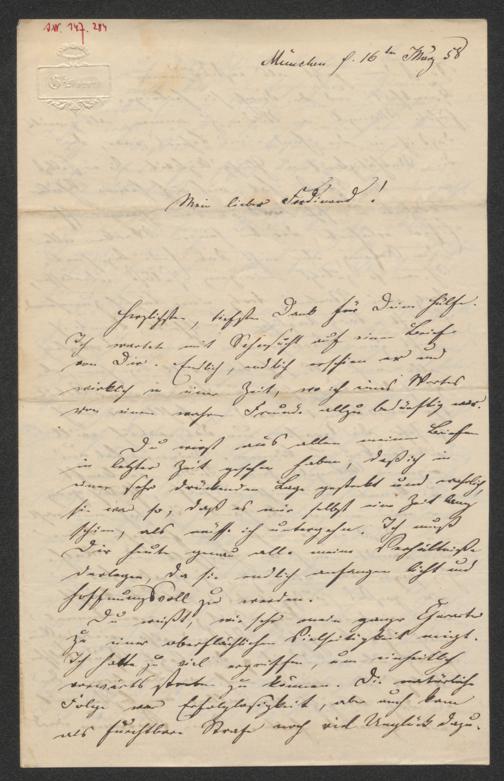 München d. 16ten März 58
Mein lieber Ferdinand!
Herzlichsten, tiefsten Dank für Deine Hülfe.
Ich wartete mit Sehnsucht auf einen Brief
von Dir. Endlich, endlich erschien er und
wirklich in einer Zeit, wo ich eines Wortes
von einem wahren Freunde allzu bedürftig war.
Du wirst aus allen meinen Briefen
in letzter Zeit gesehen haben, daß ich in
einer sehr drückenden Lage gesteckt und wahrlich,
sie war so, daß es mir selbst eine Zeit lang
schien, als müsse ich untergehn. Ich muß
Dir heute genau alle meine Verhältnisse
darlegen, da sie endlich anfangen licht und
hoffnungsvoll zu werden.
Du weißt, wie sehr mein ganzer Charakter
zu einer oberflächlichen Vielseitigkeit neigt.
Ich hatte zu viel ergriffen, um einheitlich
vorwärts streben zu können. Die natürliche
Folge war Erfolglosigkeit, aber auch kam
als furchtbare Strafe noch viel Unglück dazu.